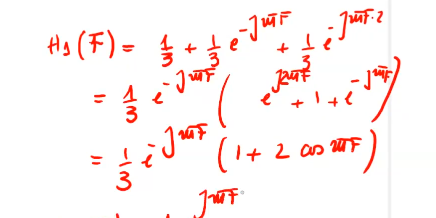 H₁(F) = 1/3 + 1/3 e^{-j2πF} + 1/3 e^{-j2πF·2}
= 1/3 e^{-j2πF} ( e^{j2πF} + 1 + e^{-j2πF} )
= 1/3 e^{-j2πF} (1 + 2 cos 2πF)
j2πF